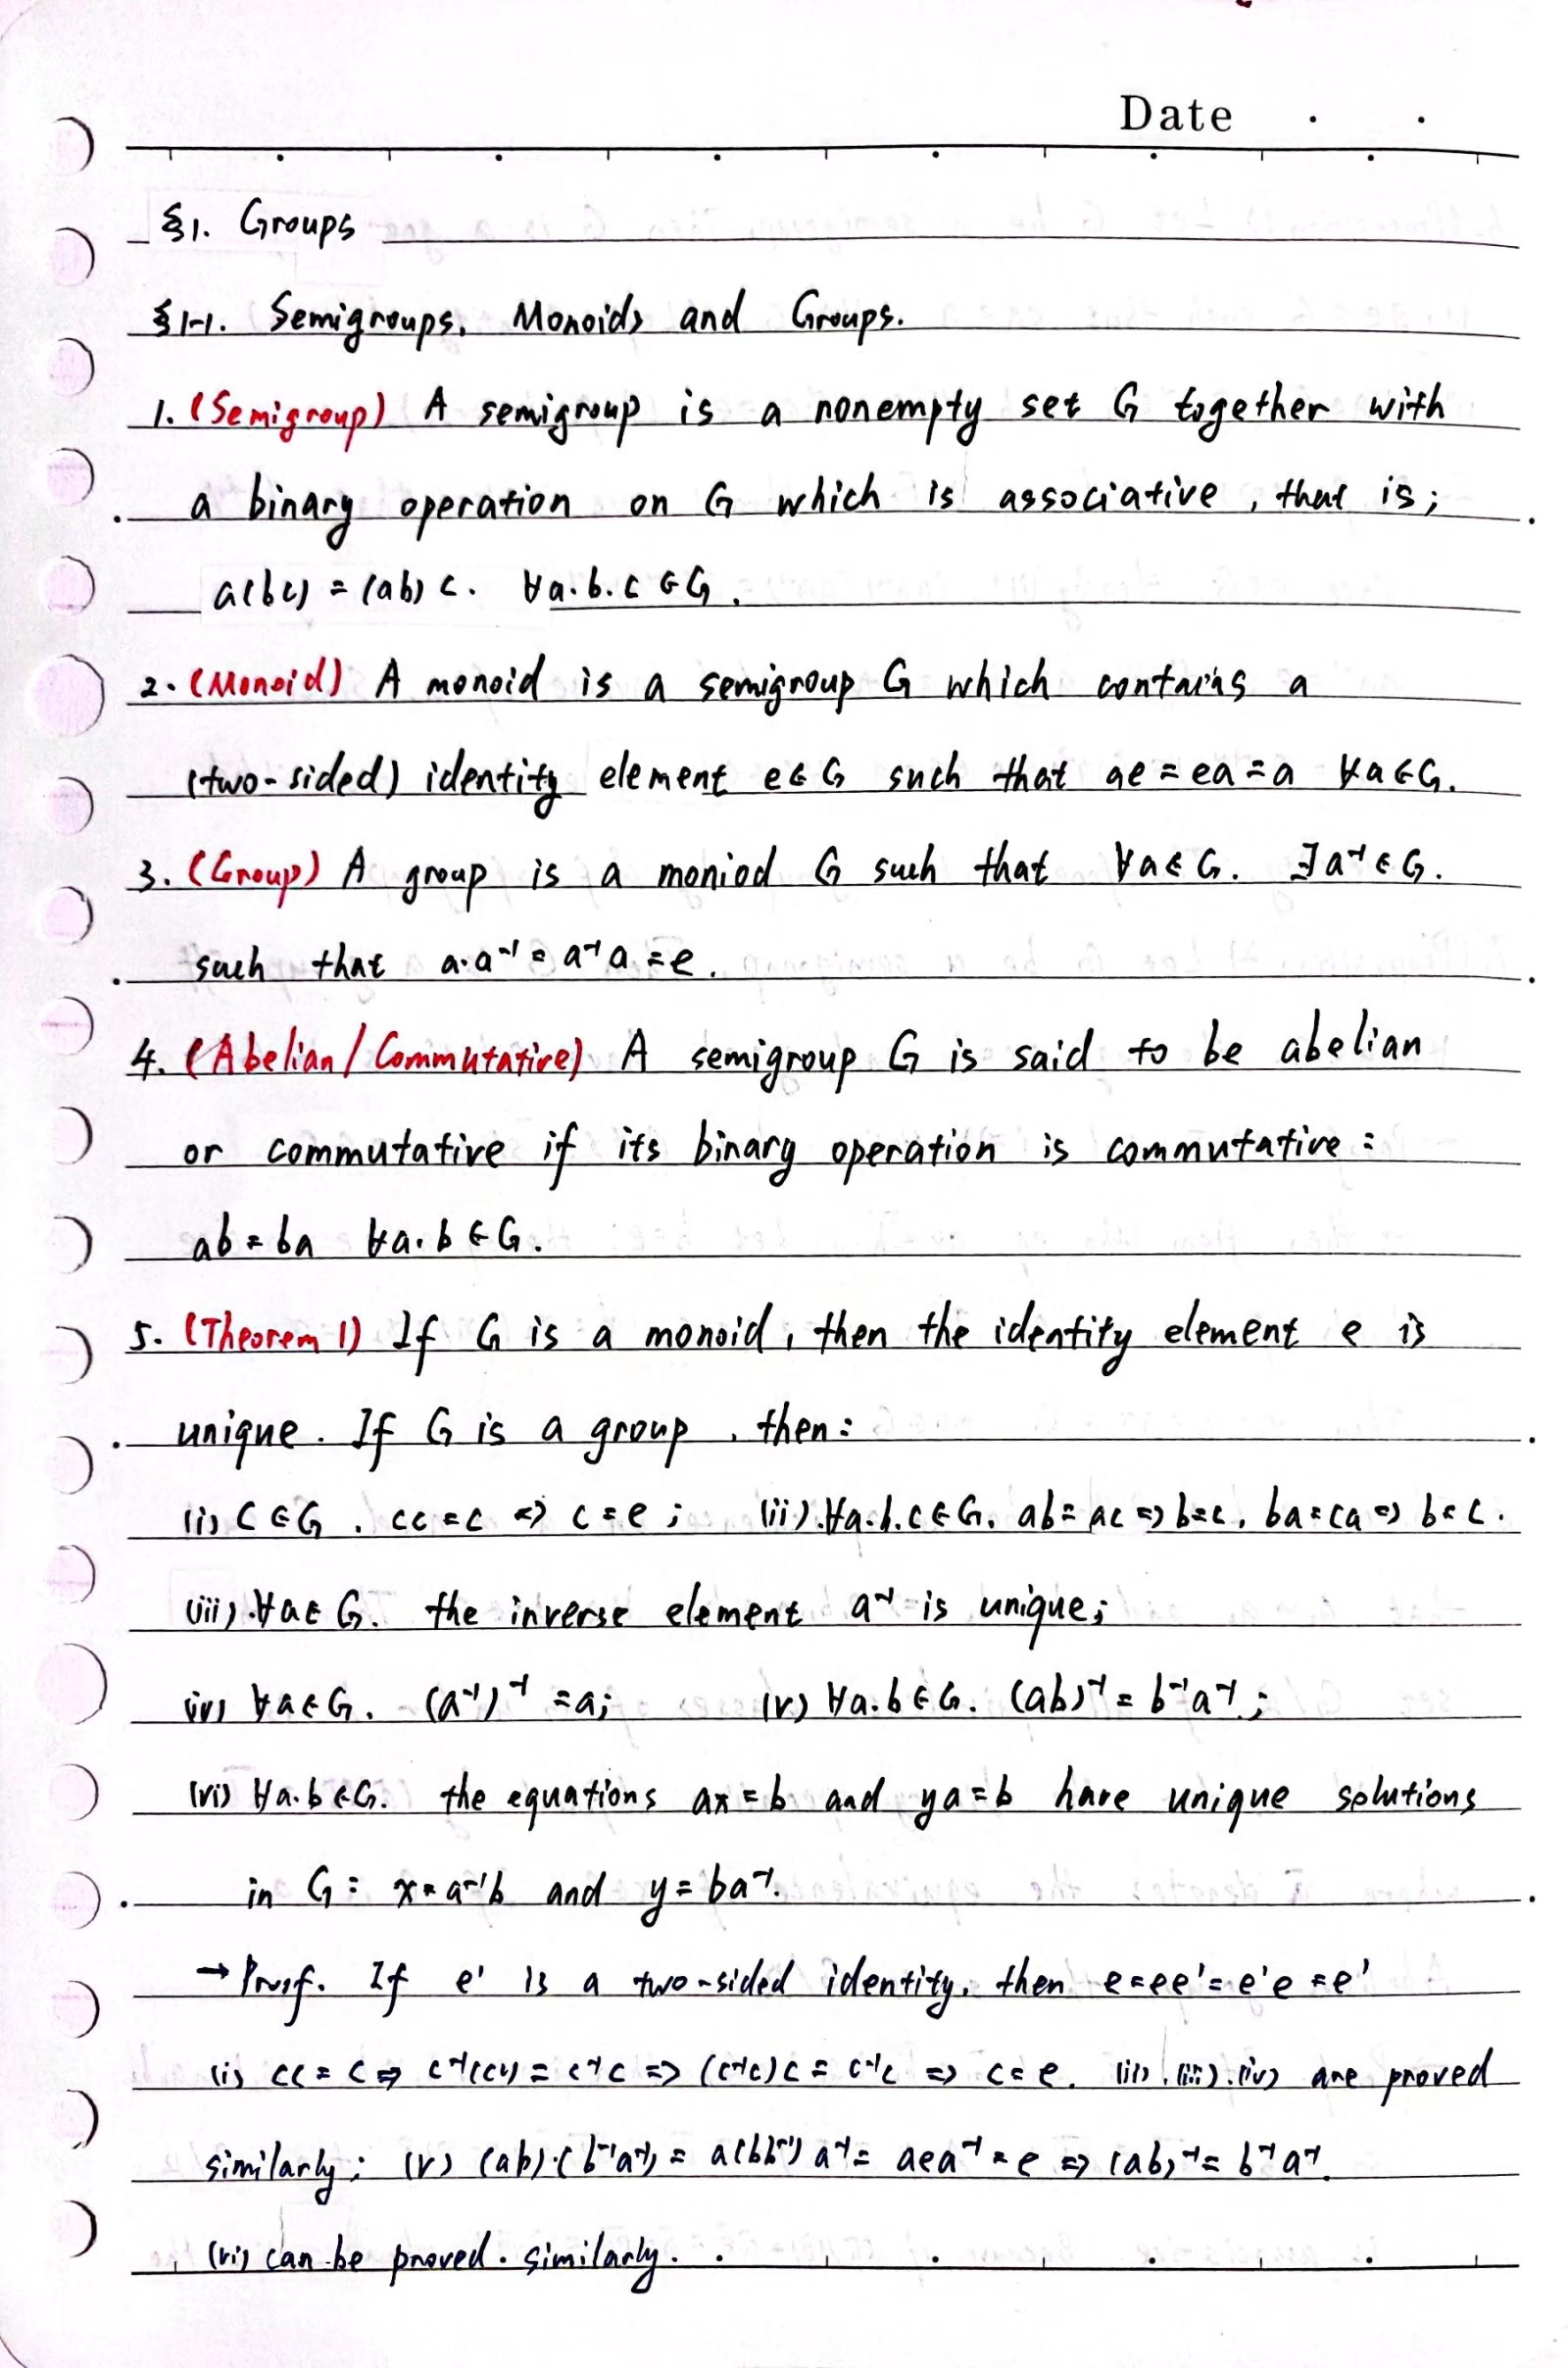 Date . .
§1. Groups
§1-1. Semigroups, Monoids and Groups.
1. (Semigroup) A semigroup is a nonempty set G together with
a binary operation on G which is associative, that is;
a(bc) = (ab)c. ∀a.b.c ∈ G.
2. (Monoid) A monoid is a semigroup G which contains a
(two-sided) identity element e ∈ G such that ae = ea = a ∀a ∈ G.
3. (Group) A group is a moniod G such that ∀a ∈ G. ∃a⁻¹ ∈ G.
such that a·a⁻¹ = a⁻¹a = e.
4. (Abelian/Commutative) A semigroup G is said to be abelian
or commutative if its binary operation is commutative:
ab = ba ∀a.b ∈ G.
5. (Theorem 1) If G is a monoid, then the identity element e is
unique. If G is a group, then:
(i) c ∈ G. cc = c ⇒ c = e; (ii). ∀a.b.c ∈ G. ab = ac ⇒ b = c, ba = ca ⇒ b = c.
(iii). ∀a ∈ G. the inverse element a⁻¹ is unique;
(iv) ∀a ∈ G. (a⁻¹)⁻¹ = a; (v) ∀a.b ∈ G. (ab)⁻¹ = b⁻¹a⁻¹;
(vi) ∀a.b ∈ G. the equations ax = b and ya = b have unique solutions
in G: x = a⁻¹b and y = ba⁻¹.
→ Proof. If e' is a two-sided identity, then e = ee' = e'e = e'
(i) cc = c ⇒ c⁻¹(cc) = c⁻¹c ⇒ (c⁻¹c)c = c⁻¹c ⇒ c = e. (ii).(iii).(iv) are proved
similarly; (v) (ab)·(b⁻¹a⁻¹) = a(bb⁻¹)a⁻¹ = aea⁻¹ = e ⇒ (ab)⁻¹ = b⁻¹a⁻¹.
(vi) can be proved similarly.